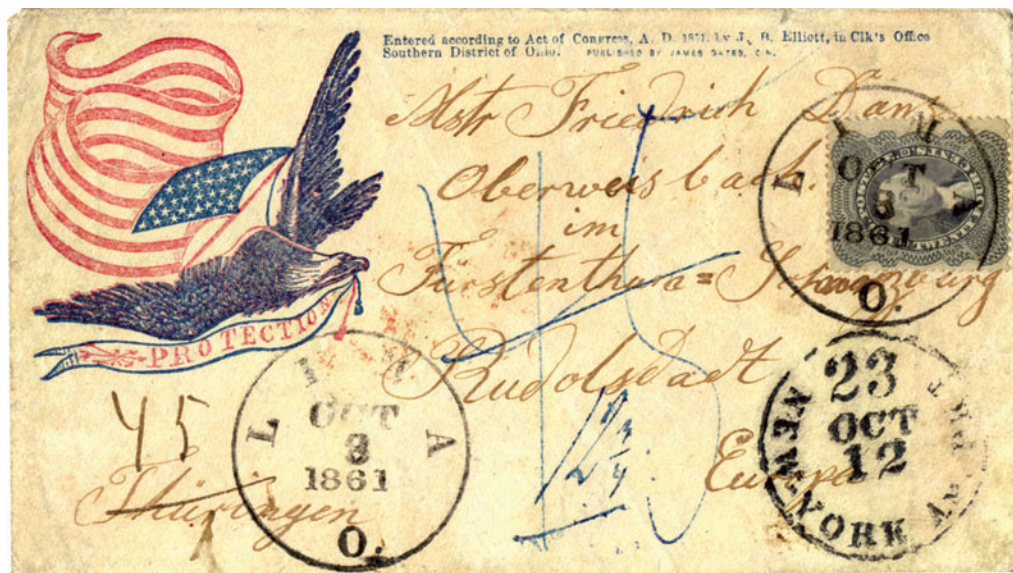 Entered according to Act of Congress, A. D. 1861, by J. B. Elliott, in Clk's Office
Southern District of Ohio. PUBLISHED BY JAMES GATES, CIN.
Mstr Friedrich
Oberweisbach.
im
Fürstenthum = Schwarzburg
Rudolstadt
Europa
Thüringen
45
PROTECTION
LIMA
OCT
3
1861
O.
LIMA
OCT
3
1861
O.
NEW-YORK AM. PKT.
23
OCT
12